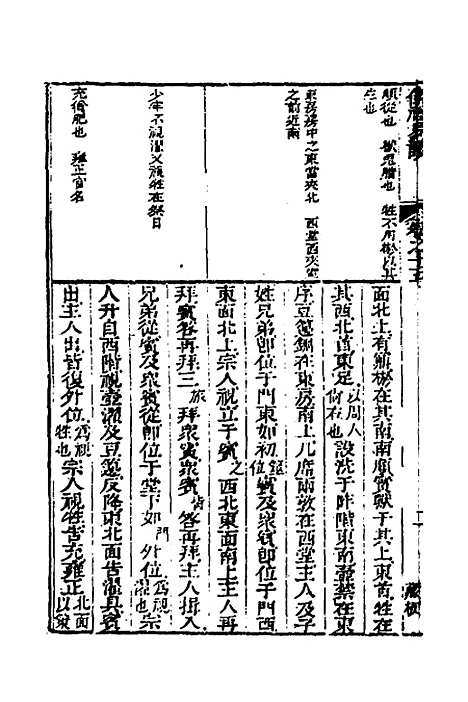 卷之十五
藏板
順從也 獸兎腊也 牲不用棜以其
生也
東房房中之東當夾北 西堂西夾室
之前近南
少牢不視濯又視牲在祭日
充猶肥也 雍正官名
面北上有鼎棜在其南南順實獸于其上東首牲在
其西北首東足以周人尚右也設洗于阼階東南壺禁在東
序豆籩鉶在東房南上几席兩敦在西堂主人及子
姓兄弟即位于門東如初筮位賓及衆賓即位于門西
東面北上宗人視立于賓之西北東面南上主人再
拜賓答再拜三旅拜衆賓衆賓皆答再拜主人揖入
兄弟從賓及衆賓從即位于堂下如門外位爲視濯也宗
人升自西階視壺濯及豆籩反降東北面告濯具賓
出主人出皆復外位爲視牲也宗人視牲告充雍正北面以策